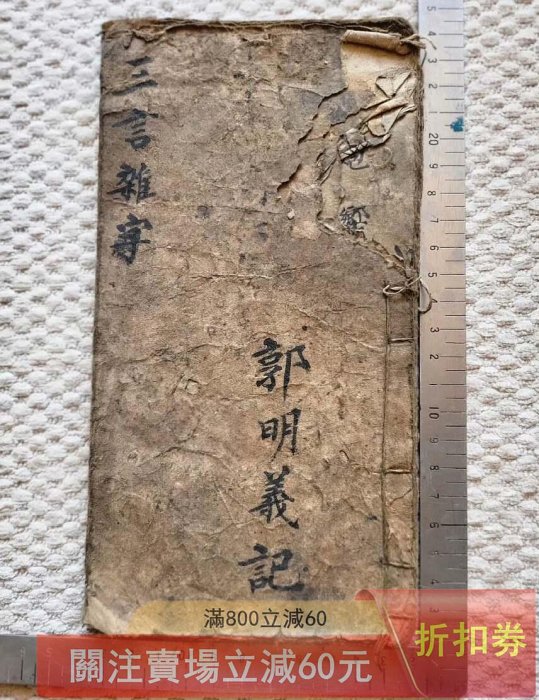 三言雜字
郭明義記
滿800立減60
關注賣場立減60元
折扣券
5
20
5
10
5